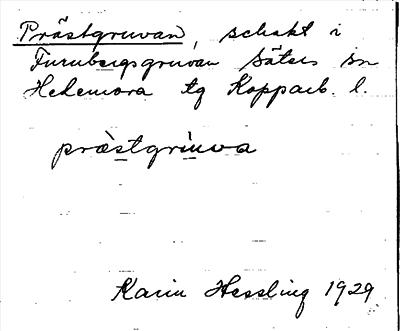 Prästgruvan, schakt i
Furubergsgruvan Säters sn
Hedemora tg Kopparb. l.
præstgruva
Karin Hessling 1929